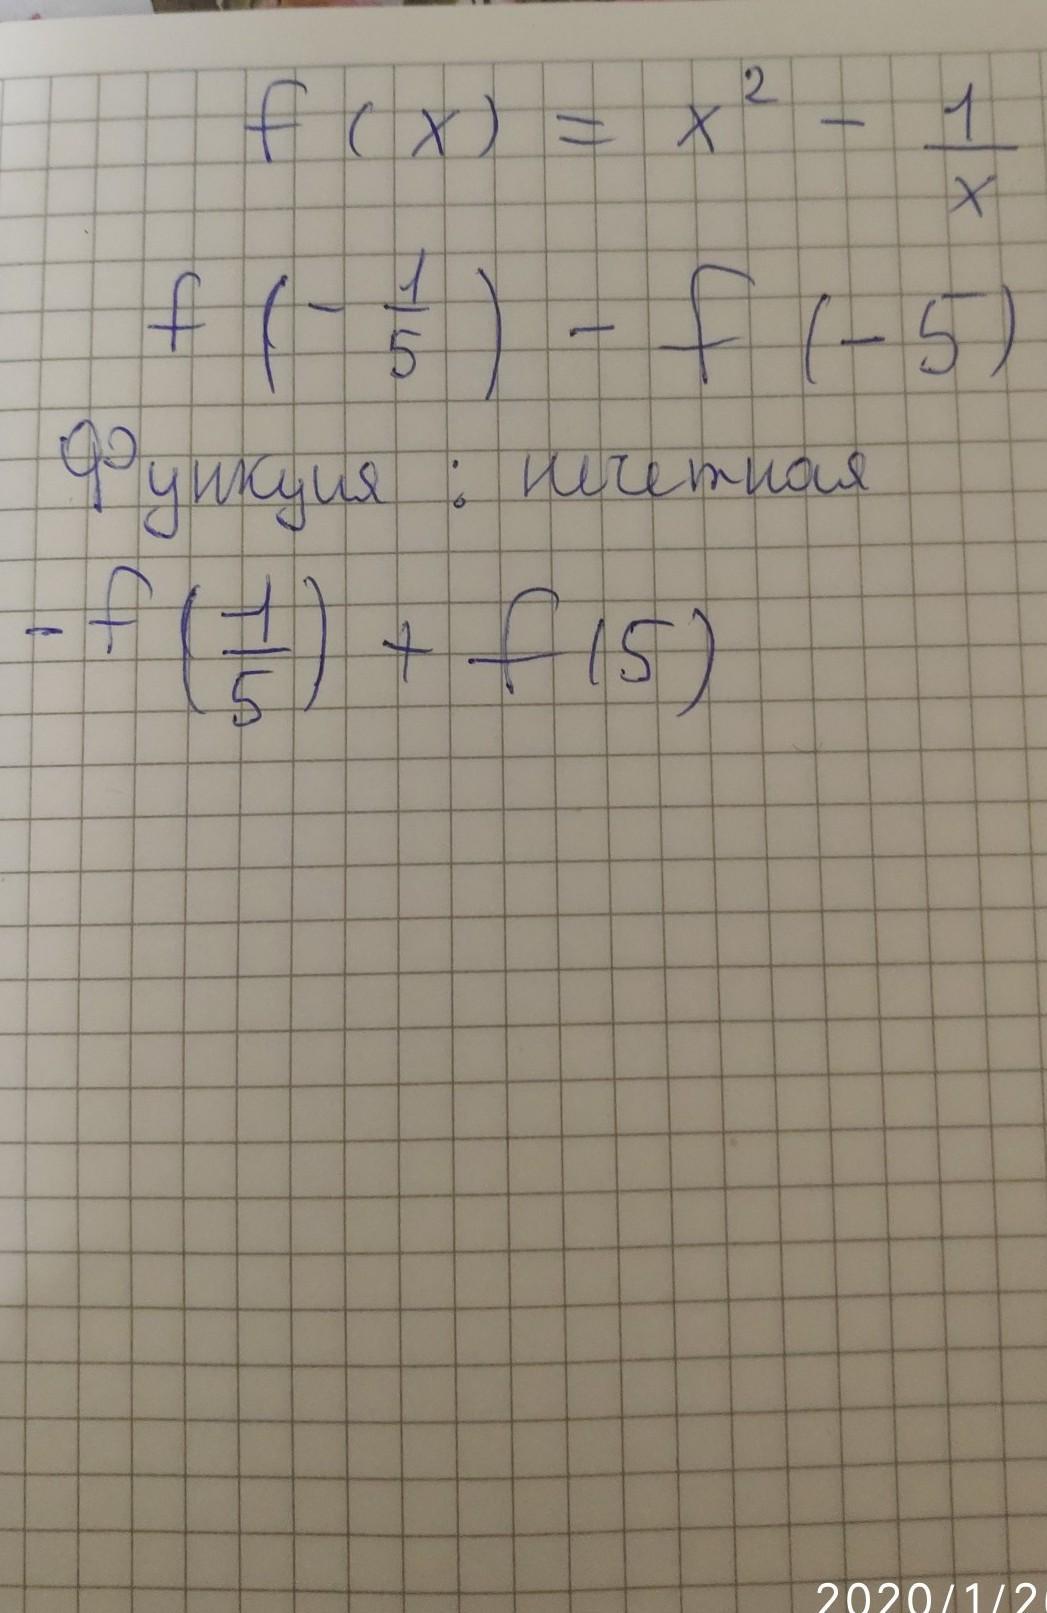 f(x) = x² - 1/x
f(-1/5) - f(-5)
Функция : нечетная
-f(1/5) + f(5)
2020/1/2